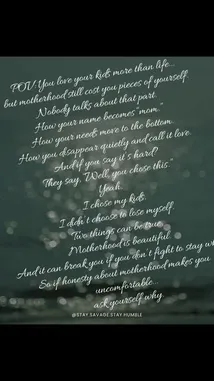 POV: You love your kids more than life...
but motherhood still cost you pieces of yourself.
Nobody talks about that part.
How your name becomes "mom."
How your needs move to the bottom.
How you disappear quietly and call it love.
And if you say it's hard?
They say, "Well, you chose this."
Yeah...
I chose my kids.
I didn't choose to lose myself.
Two things can be true.
Motherhood is beautiful.
And it can break you if you don't fight to stay
So if honesty about motherhood makes you
uncomfortable...
ask yourself why.
@STAY.SAVAGE.STAY.HUMBLE